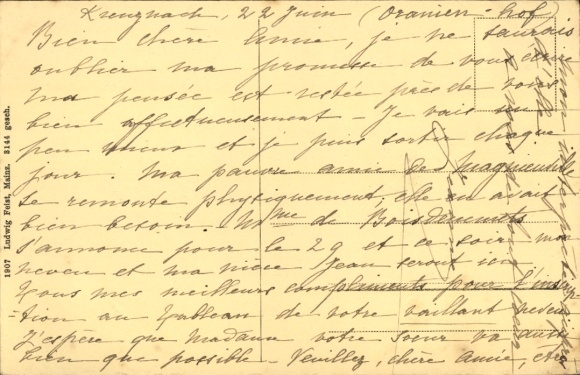 Kreuznach, 22 Juin (Oranien-hof)
Bien chère Amie, je ne saurais
oublier ma promesse de vous écrire
Ma pensée est restée près de vous
bien affectueusement - Je vais un
peu mieux et je puis sortir chaque
jour. Ma pauvre amie de
se remonte physiquement, elle en avait
bien besoin. Mme de Boisdenemets
s'annonce pour le 29 et ce soir mon
neveu et ma nièce Jean seront ici
Tous mes meilleurs compliments pour l'inscrip
tion au tableau de votre vaillant neveu
J'espère que madame votre soeur va aussi
bien que possible - Veuillez, chère Amie, être
1907 Ludwig Feist, Mainz. 3144 gesch.